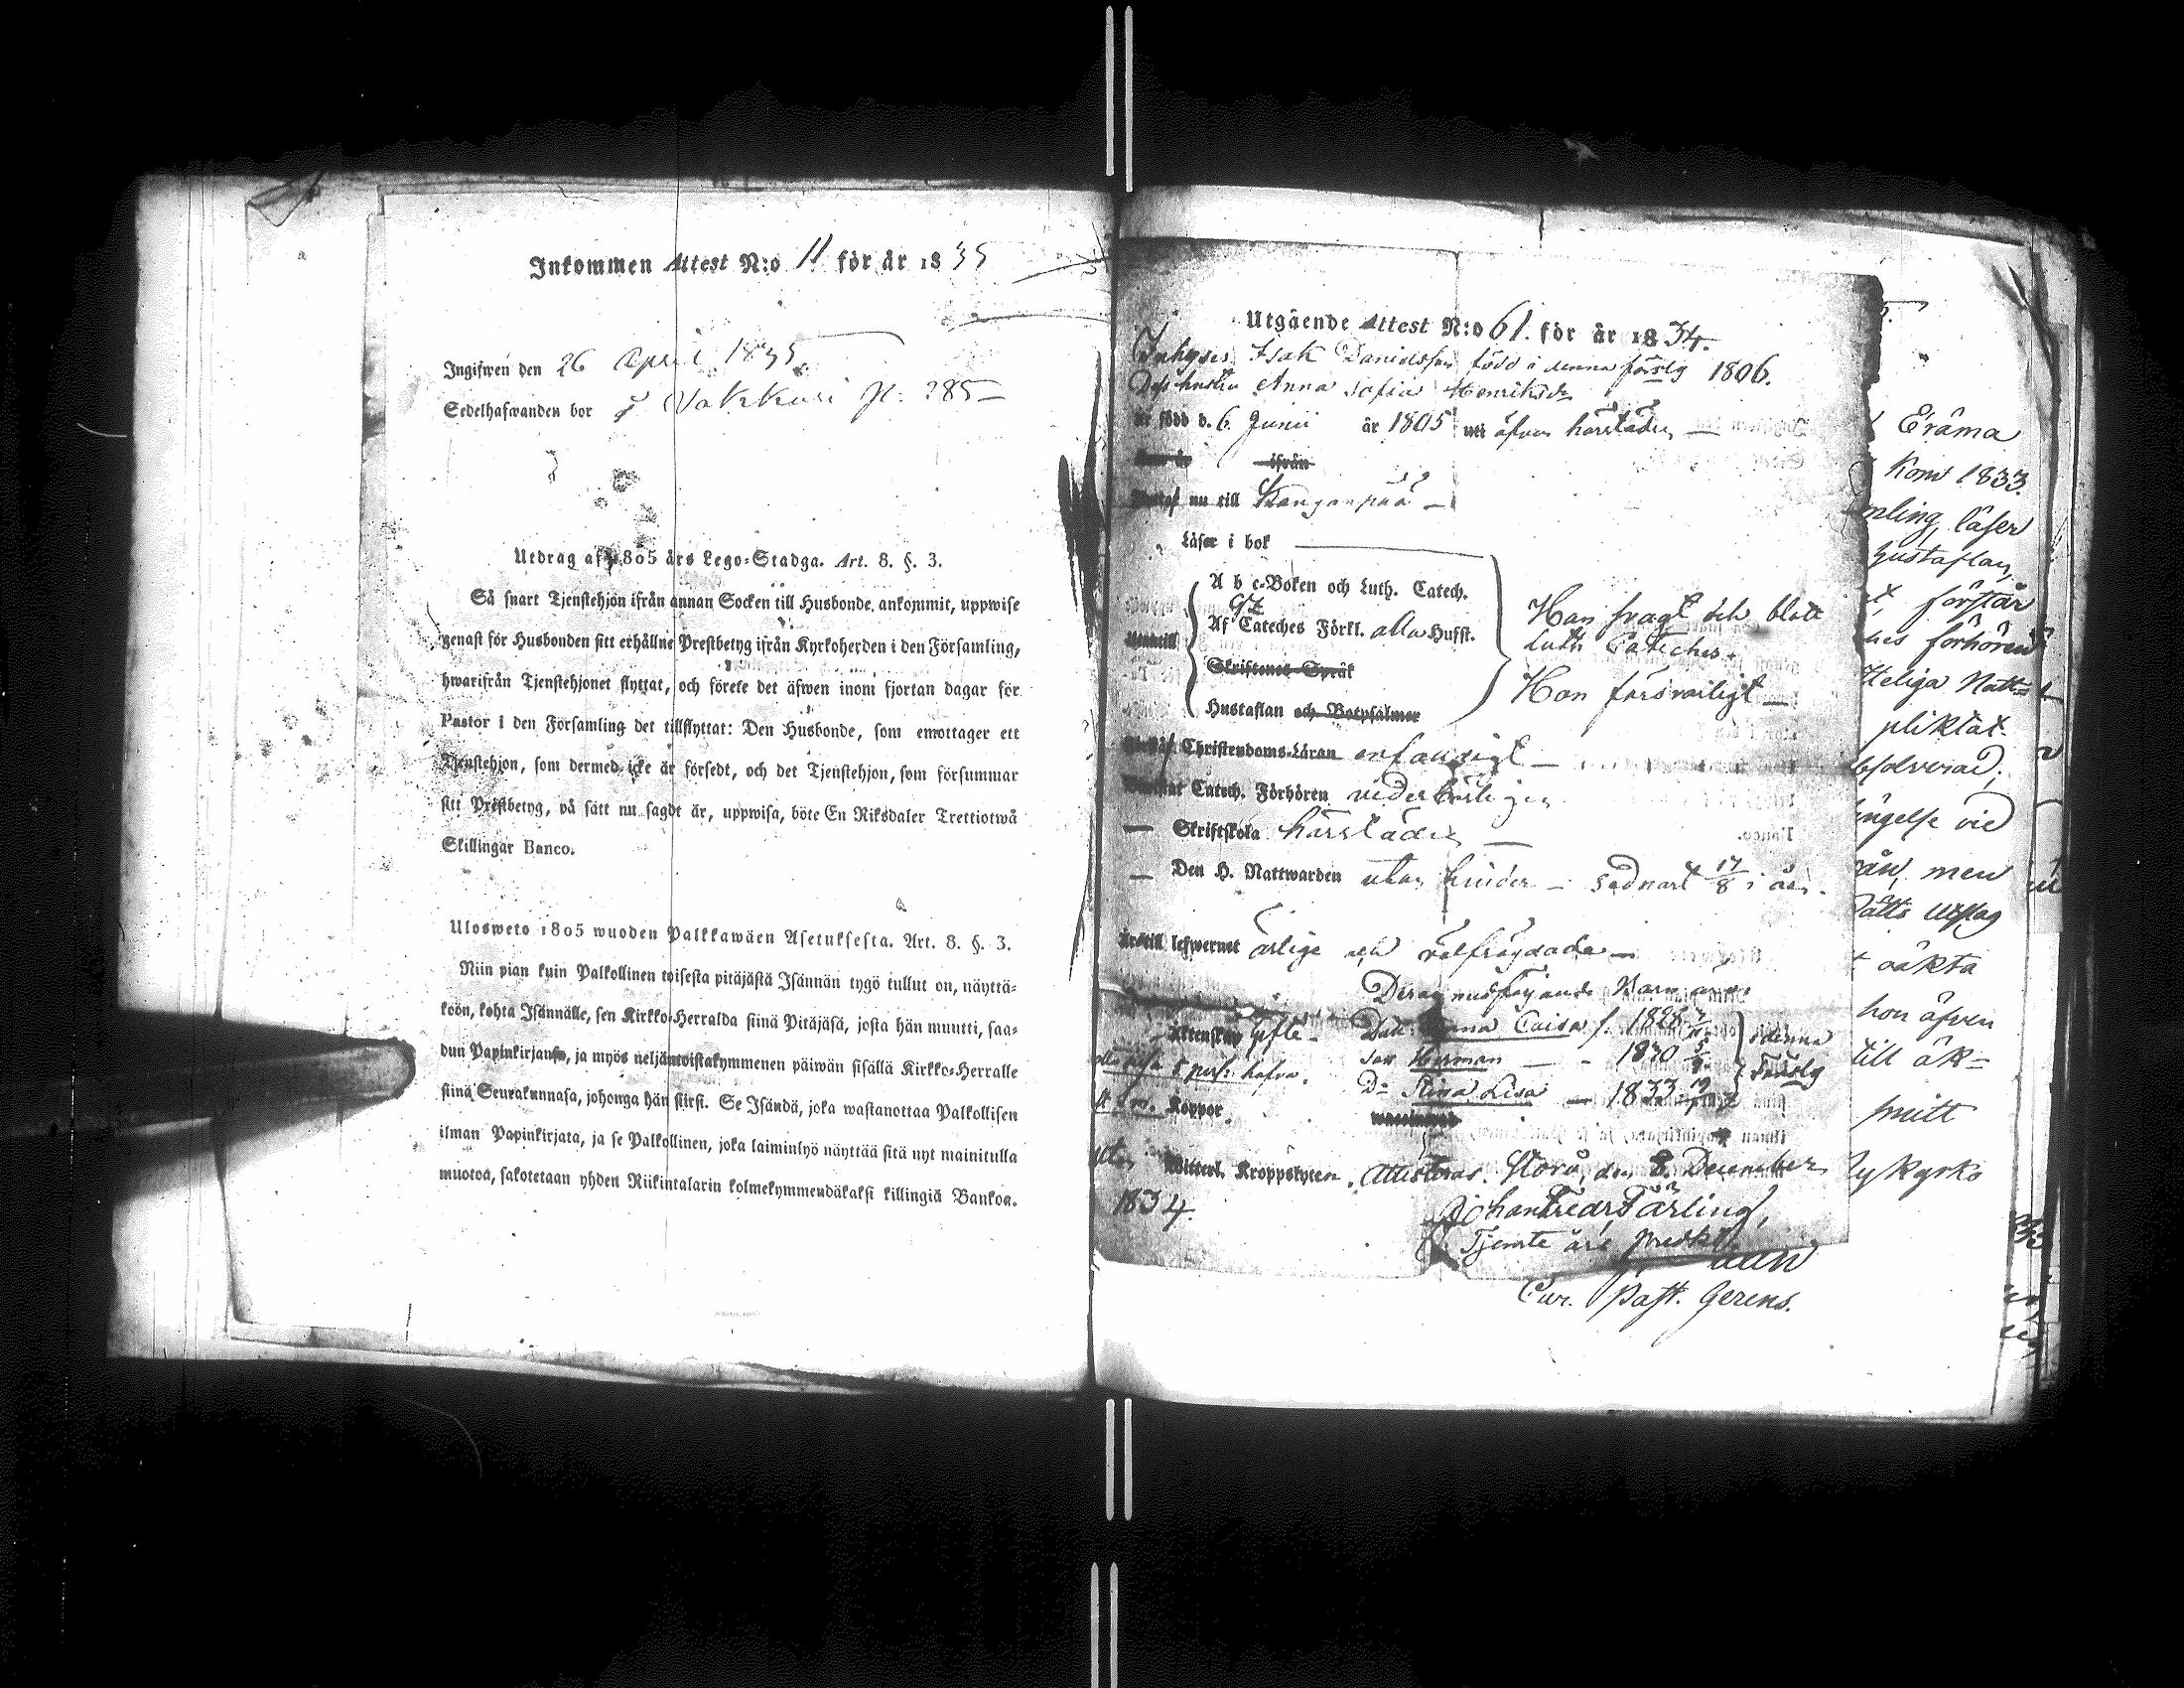 Inkommen Attest N:o 11 för år 1835
Ingifwen den 26 April 1835.
Sedelhafwanden bor i Vakkuri
Utdrag af 1805 års Lego-Stadga. Art. 8. §. 3.
Så snart Tjenstehjon ifrån annan Socken till Husbonde ankommit, uppwise
genast för Husbonden sitt erhållne Prestbetyg ifrån Kyrkoherden i den Församling,
hwarifrån Tjenstehjonet flyttat, och förete det äfwen inom fjortan dagar för
Pastor i den Församling det tillflyttat: Den Husbonde, som emottager ett
Tjenstehjon, som dermed icke är försedt, och det Tjenstehjon, som försummar
sitt Prestbetyg, på sätt nu sagdt är, uppwisa, böte En Riksdaler Trettiotwå
Skillingar Banco.
Ulosweto 1805 wuoden Palkkawäen Asetuksesta. Art. 8. §. 3.
Niin pian kuin Palkollinen toisesta pitäjästä Isännän tygö tullut on, näyttä-
köön, kohta Isännälle, sen Kirkko-Herralda siinä Pitäjäsä, josta hän muutti, saa-
dun Papinkirjansa, ja myös neljäntoistakymmenen päiwän sisällä Kirkko-Herralle
siinä Seurakunnasa, johonga hän siirsi. Se Isändä, joka wastanottaa Palkollisen
ilman Papinkirjata, ja se Palkollinen, joka laiminlyö näyttää sitä nyt mainitulla
muotoa, sakotetaan yhden Riikintalarin kolmekymmendäkaksi killingiä Bankoa.
Utgående Attest N:o 61. för år 1834.
Inhyses Isak Danielsson född i denna förslg 1806.
Dess hustru Anna Sofia Henriksdr
är född d. 6 Junii år 1805 uti äfven härstädes
ifrån
nu till Kanganpää
Läser i bok
A b c-Boken och Luth. Catech.
Af Cateches Förkl. alla Husst.
Skriftenes Språk
Hustaflan och Botpsalmer
Han svagt och blott
Luth. Cateches.
Hon försvarligt
Christendoms-Läran enfaldigt
Catech. Förhören vederbörligen
Skriftskola härstädes
Den H. Nattwarden utan hinder – sednast 17/8 i år.
till lefwernet ärlige och välfräjdade
Deras medföljande Barn äro:
Äktenskap gifte - Dott. Anna Caisa f. 1828
Son Herman - - 1830
i denna Förslg
5 pers. hafva. D:o Stina Lisa - 1833
Koppor
Witterl. Kroppslyten. Attesteras. Storå, den 8 December
1834.
Johan Fredr. Färling,
Tjenste
Cur. Past. Gerens.
Eräma
kom 1833.
läser
hustaflan,
förstår
förhören
Heliga Natt=
pliktat.
vid
men
äkta
hon äfven
till äk=
smitt
kyrko